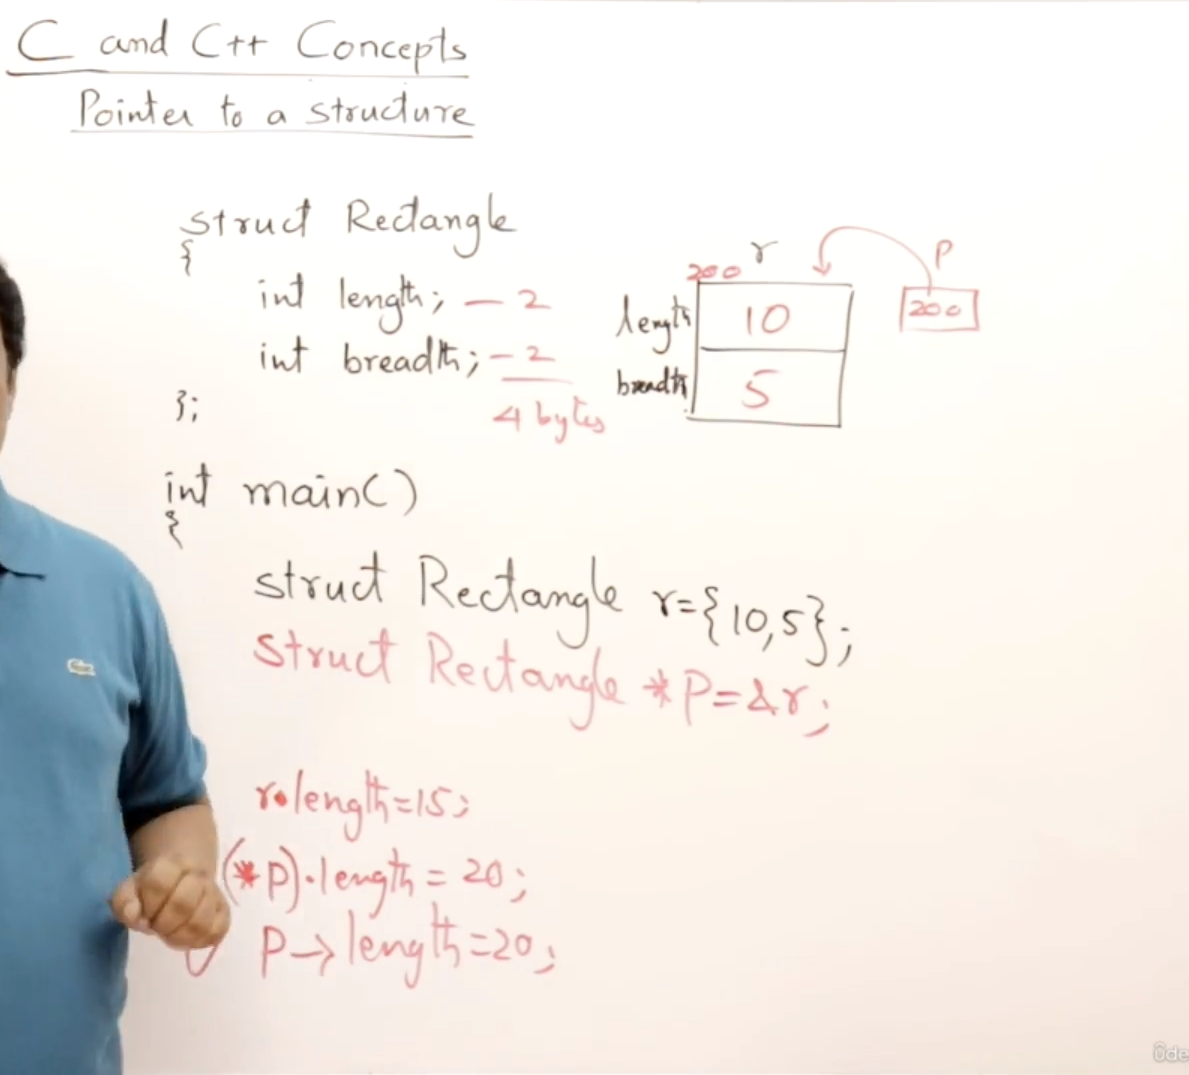 C and C++ Concepts
Pointer to a structure
struct Rectangle
{
int length; — 2
int breadth; — 2
4 bytes
};
r
200
length 10
breadth 5
P
200
int main()
{
struct Rectangle r={10,5};
struct Rectangle *P=&r;
r.length=15;
(*P).length = 20;
P→length=20;